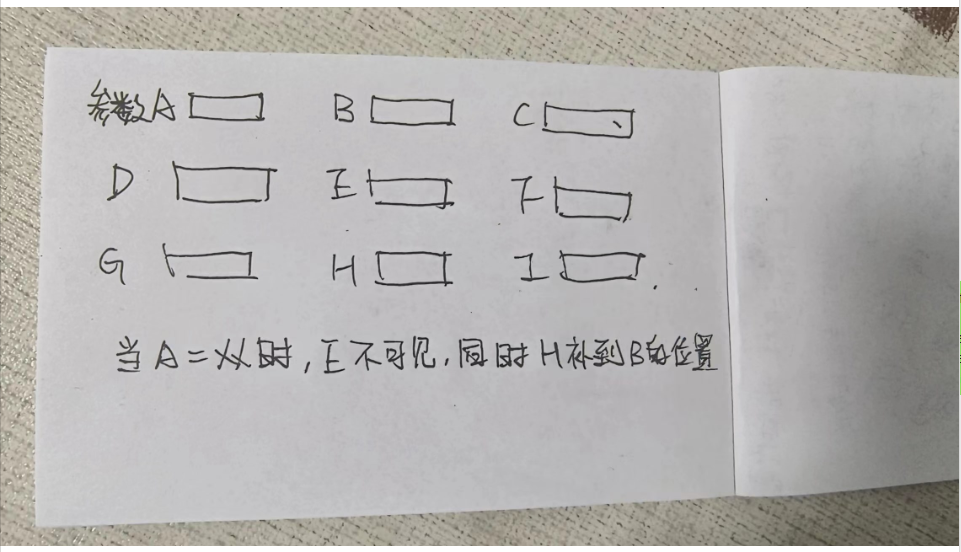 参数A B C
D E F
G H I
当A=XX时,E不可见,同时H补到B的位置